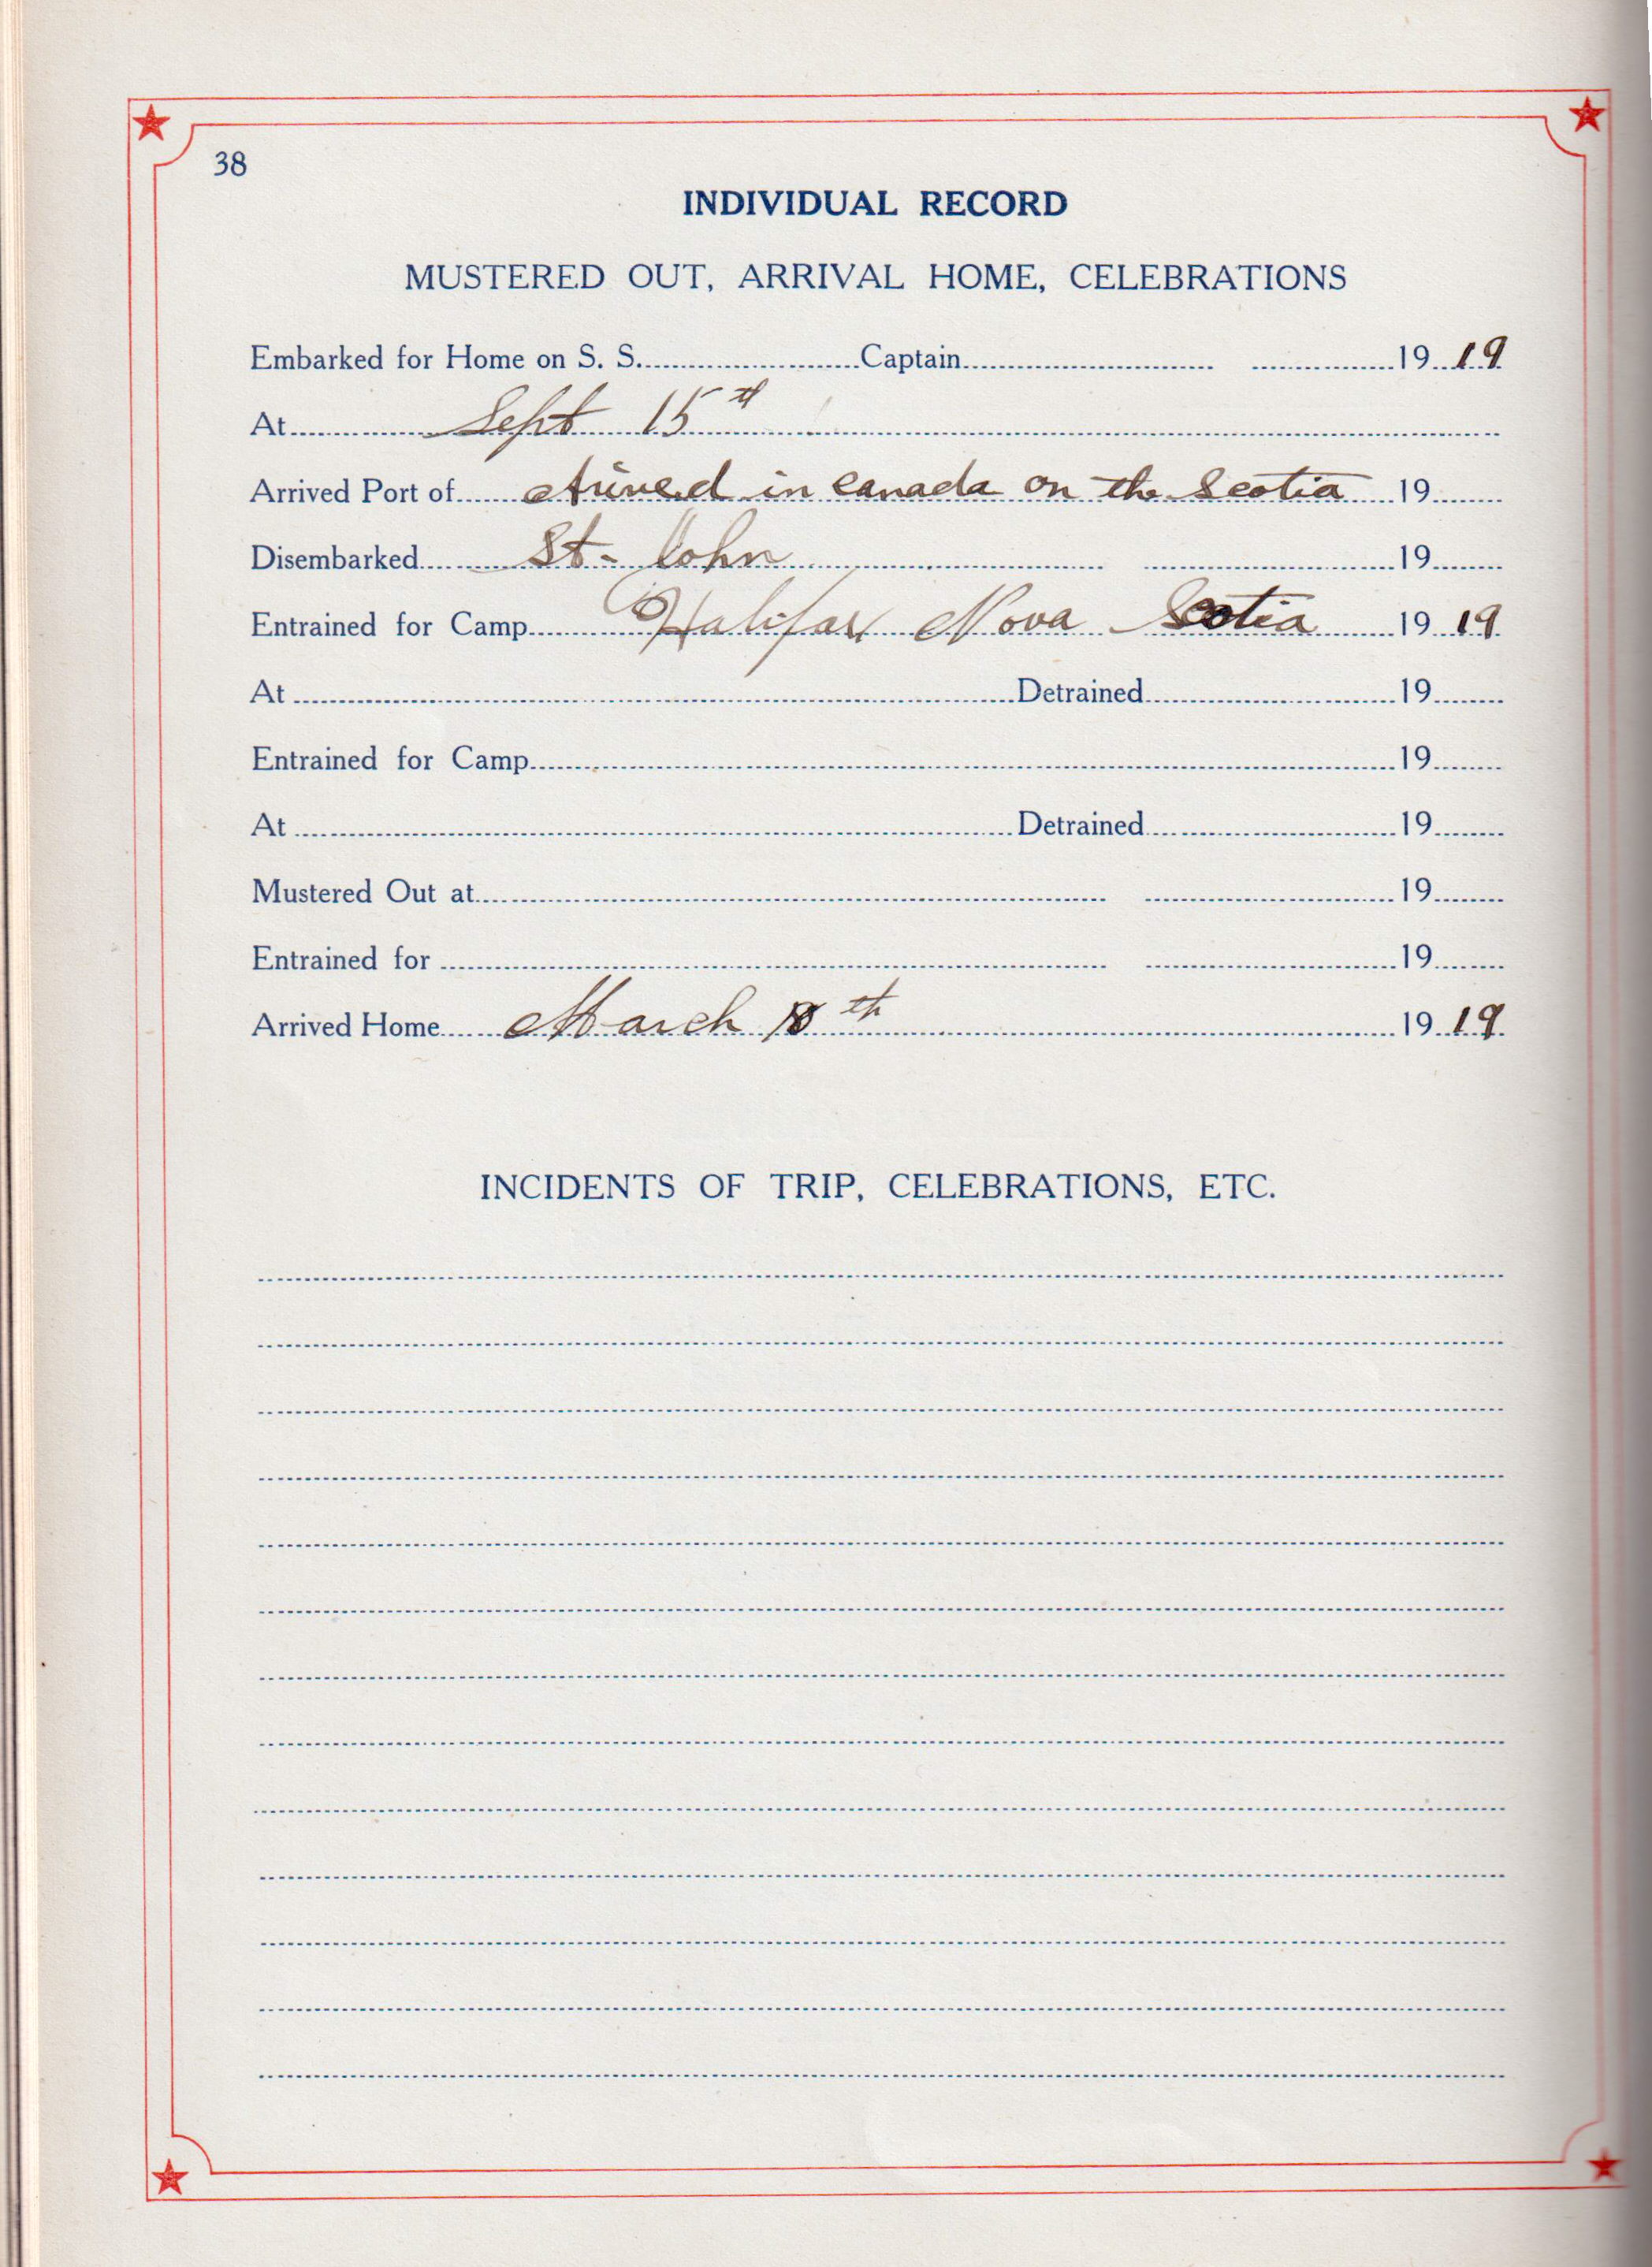 38
INDIVIDUAL RECORD
MUSTERED OUT, ARRIVAL HOME, CELEBRATIONS
Embarked for Home on S. S. Captain 19 19
At Sept 15th
Arrived Port of Arived in Canada on the Scotia 19
Disembarked St- John 19
Entrained for Camp Halifax Nova Scotia 19 19
At Detrained 19
Entrained for Camp 19
At Detrained 19
Mustered Out at 19
Entrained for 19
Arrived Home March th 19 19
INCIDENTS OF TRIP, CELEBRATIONS, ETC.